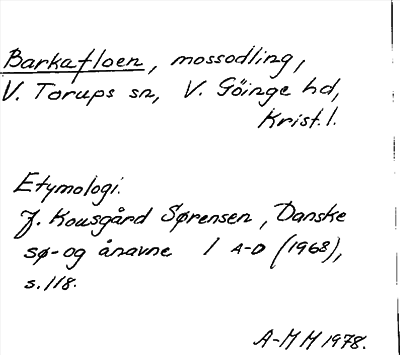 Barkafloen, mossodling,
V. Torups sn, V. Göinge hd,
Krist. l.
Etymologi.
J. Kousgård Sørensen, Danske
sø- og ånavne I A-D (1968),
s. 118.
A-M H 1978.